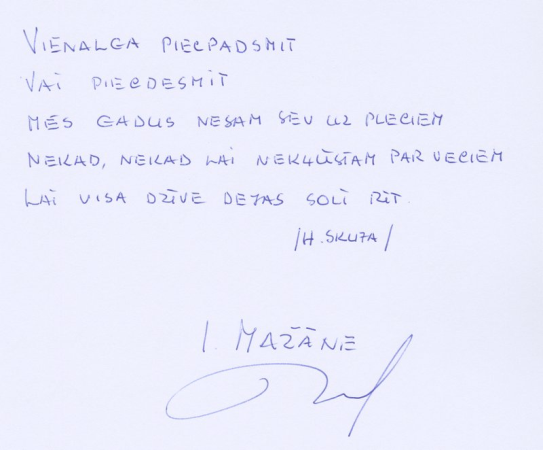 VIENALGA PIECPADSMIT
VAI PIECDESMIT
MĒS GADUS NESAM SEV UZ PLECIEM
NEKAD, NEKAD LAI NEKĻŪSTAM PAR VECIEM
LAI VISA DZĪVE DEJAS SOLĪ RIT.
/H. SKUJA/
I. MAZĀNE